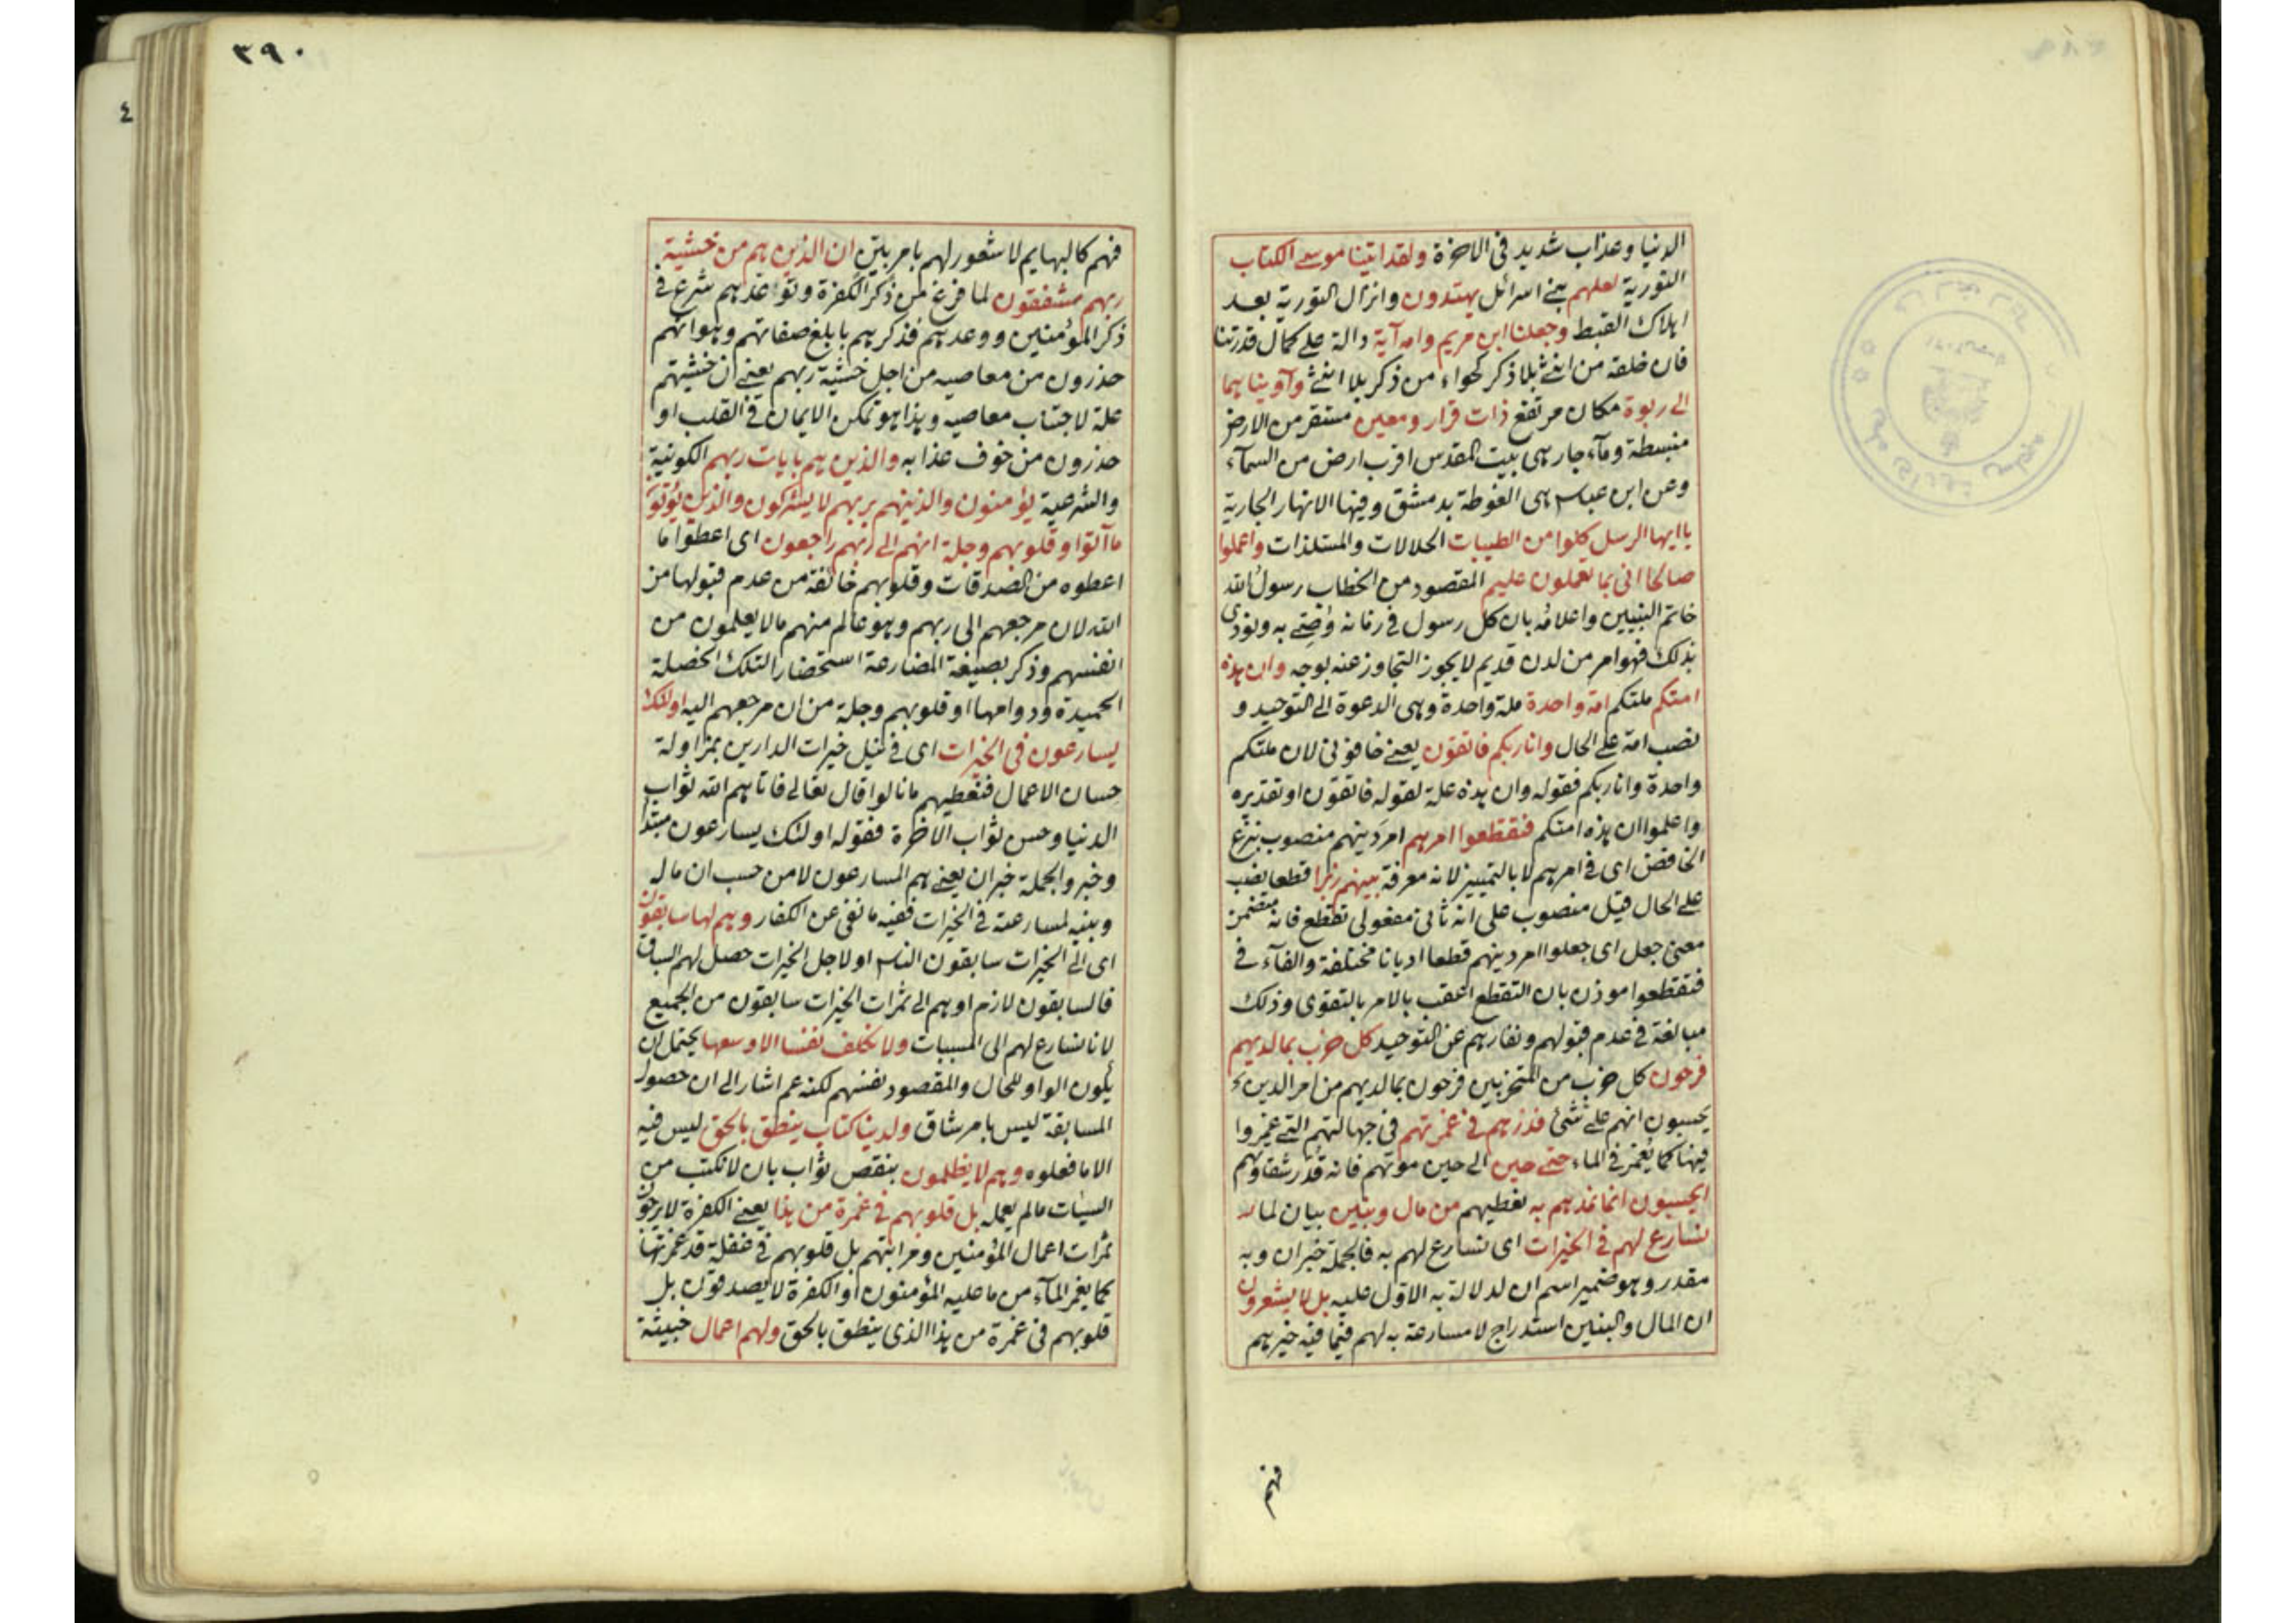 الدنيا وعذاب شديد في الاخرة ولقد اتينا موسى الكتاب
التورية لعلهم بني اسرائل يهتدون وانزال التورية بعد
اهلاك القبط وجعلنا ابن مريم وامه آية دالة على كمال قدرتنا
فان خلقه من انثى بلا ذكر كحواء من ذكر بلا انثى وآويناهما
الى ربوة مكان مرتفع ذات قرار ومعين مستقر من الارض
منبسطة وماء جار هى بيت المقدس اقرب ارض من السماء
وعن ابن عباس هى الغوطة بدمشق وفيها الانهار الجارية
يا ايها الرسل كلوا من الطيبات الحلالات والمستلذات واعملوا
صالحا انى بما تعملون عليم المقصود من الخطاب رسول الله
خاتم النبيين واعلامه بان كل رسول فى زمانه وُصّى به ونودى
بذلك فهو امر من لدن قديم لا يجوز التجاوز عنه بوجه وان هذه
امتكم ملتكم امة واحدة ملة واحدة وهى الدعوة الى التوحيد و
نصب امة على الحال وانا ربكم فاتقون يعنى خافونى لان ملتكم
واحدة وانا ربكم فقوله وان هذه علة لقوله فاتقون او تقديره
واعلموا ان هذه امتكم فتقطعوا امرهم امر دينهم منصوب بنزع
الخافض اى فى امرهم لا بالتمييز لانه معرفة بينهم زبرا قطعا نصب
على الحال قيل منصوب على انه ثانى مفعولى تقطع فانه متضمن
معنى جعل اى جعلوا امر دينهم قطعا اديانا مختلفة والفاء فى
فتقطعوا موذن بان التقطع اعقب بالامر بالتقوى وذلك
مبالغة فى عدم قبولهم ونفارهم عن التوحيد كل حزب بما لديهم
فرحون كل حزب من المتحزبين فرحون بما لديهم من امر الدين
يحسبون انهم على شئ فذرهم فى غمرتهم فى جهالتهم التى غمروا
فيها كما يغمر فى الماء حتى حين الى حين موتهم فانه قدر شقاوتهم
ايحسبون انما نمدهم به نعطيهم من مال وبنين بيان لما
نسارع لهم فى الخيرات اى نسارع لهم به فالجملة خبر ان وبه
مقدر وهو ضمير اسم ان لدلالة به الاول عليه بل لا يشعرون
ان المال والبنين استدراج لا مسارعة به لهم فيما فيه خيرهم
فهم
٣٩٠
٤
فهم كالبهايم لا شعور لهم بامر بيّن ان الذين هم من خشية
ربهم مشفقون لما فرغ من ذكر الكفرة وتواعدهم شرع فى
ذكر المؤمنين ووعدهم فذكرهم بابلغ صفاتهم وهو انهم
حذرون من معاصيه من اجل خشية ربهم يعنى ان خشيتهم
علة لاجتناب معاصيه وهذا هو تمكن الايمان فى القلب او
حذرون من خوف عذابه والذين هم بايات ربهم الكونية
والشرعية يؤمنون والذينهم بربهم لا يشركون والذين يؤتون
ما آتوا وقلوبهم وجلة انهم الى ربهم راجعون اى اعطوا ما
اعطوه من الصدقات وقلوبهم خائفة من عدم قبولها من
الله لان مرجعهم الى ربهم وهو عالم منهم ما لا يعلمون من
انفسهم وذكر بصيغة المضارعة استحضارا لتلك الخصلة
الحميدة ودوامها او قلوبهم وجلة من ان مرجعهم اليه اولئك
يسارعون فى الخيرات اى فى نيل خيرات الدارين بمزاولة
حسان الاعمال فنعطيهم ما نالوا قال تعالى فاتاهم الله ثواب
الدنيا وحسن ثواب الاخرة فقوله اولئك يسارعون مبتدا
وخبر والجملة خبر ان يعنى هم المسارعون لا من حسب ان ماله
وبنيه لمسارعته فى الخيرات ففيه ما نفى عن الكفار وهم لها سابقون
اى الى الخيرات سابقون الناس او لاجل الخيرات حصل لهم السباق
فالسابقون لازم او هم الى ثمرات الخيرات سابقون من الجميع
لانا نسارع لهم الى المسببات ولا نكلف نفسا الا وسعها يحتمل ان
يكون الواو للحال والمقصود نفسهم لكنه عم اشار الى ان حصول
المسابقة ليس بامر شاق ولدينا كتاب ينطق بالحق ليس فيه
الا ما فعلوه وهم لا يظلمون بنقص ثواب بان لا نكتب من
السيات ما لم يعمله بل قلوبهم فى غمرة من هذا يعنى الكفرة لا يرجون
ثمرات اعمال المؤمنين ومراتبهم بل قلوبهم فى غفلة قد غمرتها
كما يغمر الماء من ما عليه المؤمنون او الكفرة لا يصدقون بل
قلوبهم فى غمرة من هذا الذى ينطق بالحق ولهم اعمال خبيثة